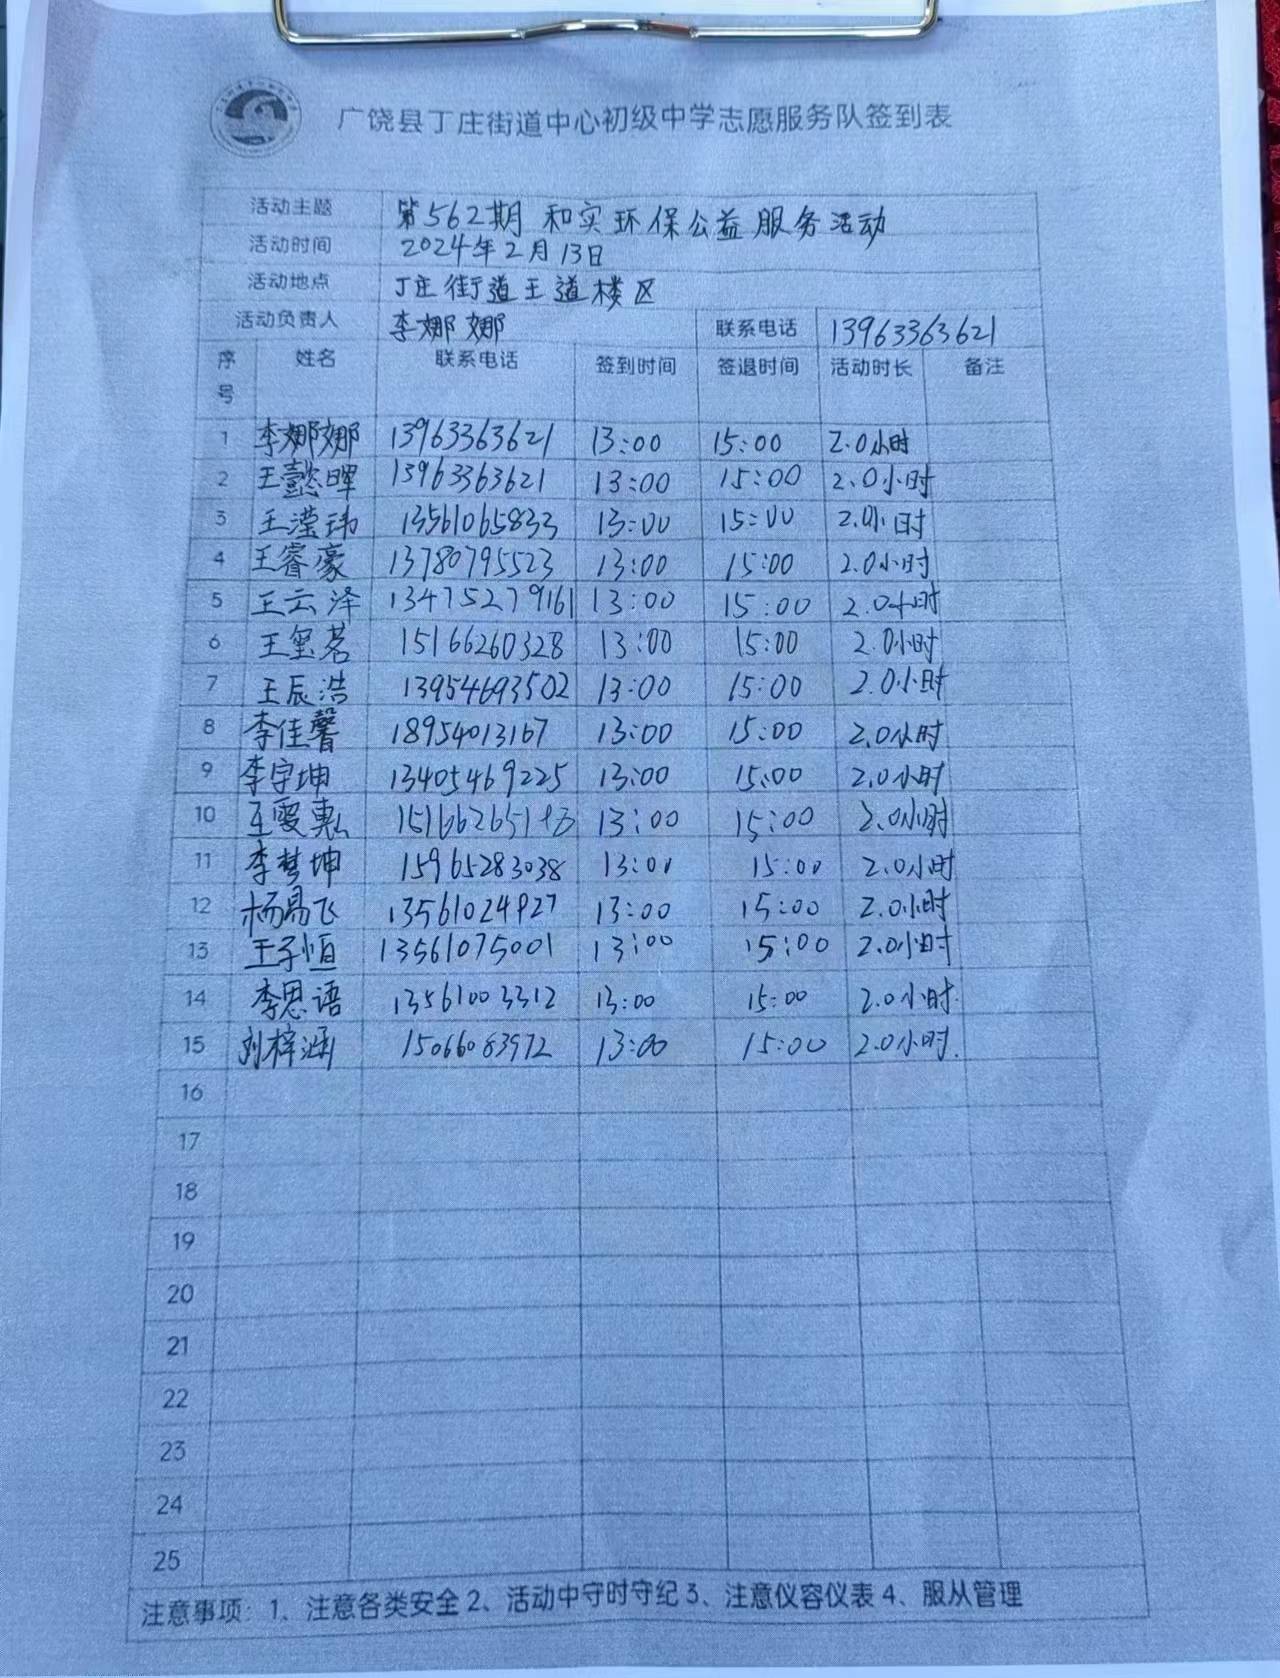 广饶县丁庄街道中心初级中学志愿服务队签到表
活动主题 第562期 和实环保公益服务活动
活动时间 2024年2月13日
活动地点 丁庄街道王道楼区
活动负责人 李娜娜 联系电话 13963363621
序号 姓名 联系电话 签到时间 签退时间 活动时长 备注
1 李娜娜 13963363621 13:00 15:00 2.0小时
2 王懿晖 13963363621 13:00 15:00 2.0小时
3 王滢玮 13561065833 13:00 15:00 2.0小时
4 王睿豪 13780795523 13:00 15:00 2.0小时
5 王云泽 13475279161 13:00 15:00 2.0小时
6 王玺茗 15166260328 13:00 15:00 2.0小时
7 王辰浩 13954693502 13:00 15:00 2.0小时
8 李佳馨 18954013167 13:00 15:00 2.0小时
9 李宇坤 13405469225 13:00 15:00 2.0小时
10 王雯惠 13:00 15:00 2.0小时
11 李梦坤 15965283038 13:00 15:00 2.0小时
12 杨易飞 13561024927 13:00 15:00 2.0小时
13 王子恒 13561075001 13:00 15:00 2.0小时
14 李思语 13561003312 13:00 15:00 2.0小时.
15 刘梓涵 15066083972 13:00 15:00 2.0小时.
16
17
18
19
20
21
22
23
24
25
注意事项：1、注意各类安全2、活动中守时守纪3、注意仪容仪表4、服从管理